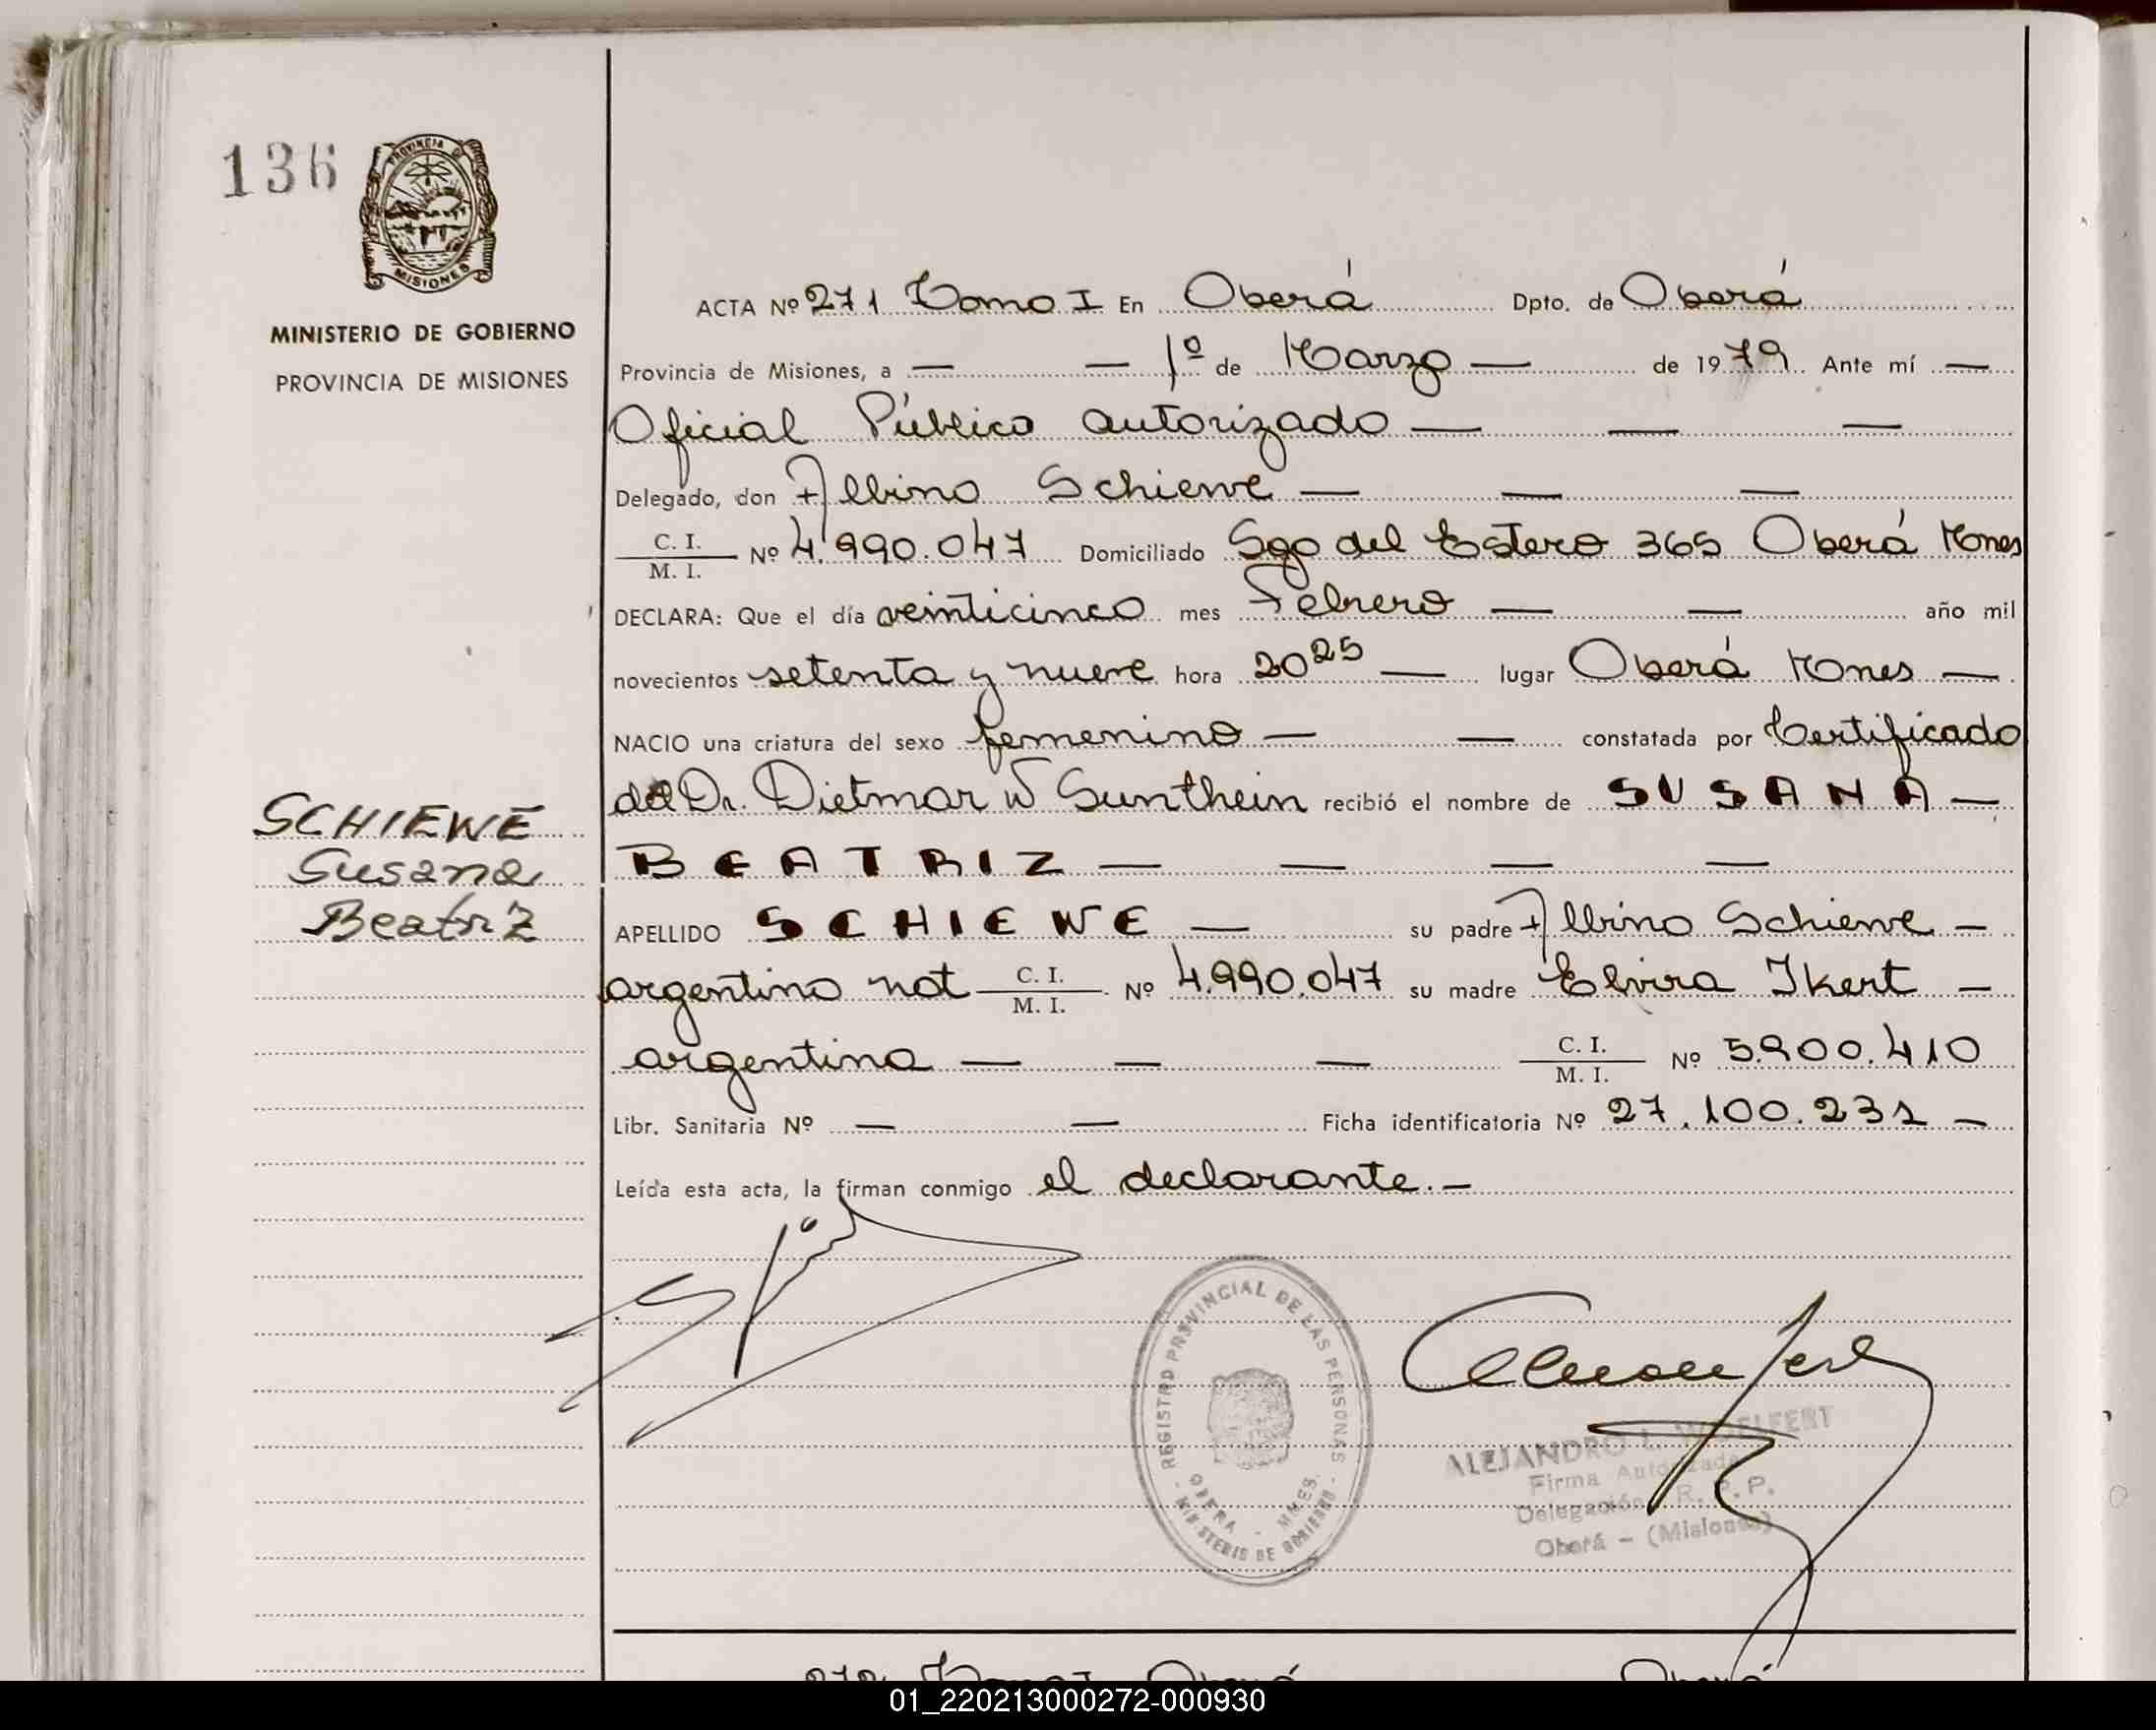 136
PROVINCIA DE
MISIONES
MINISTERIO DE GOBIERNO
PROVINCIA DE MISIONES
SCHIEWE
Susana
Beatriz
ACTA Nº 271 Tomo I En Oberá Dpto. de Oberá
Provincia de Misiones, a — — 1º de Marzo — de 1979 Ante mí —
Oficial Público autorizado — — —
Delegado, don Albino Schiewe — — —
C. I. / M. I. Nº 4.990.047 Domiciliado Sgo del Estero 365 Oberá Mnes
DECLARA: Que el día veinticinco mes Febrero — — año mil
novecientos setenta y nueve hora 20 25 — lugar Oberá Mnes —
NACIO una criatura del sexo femenino — — constatada por Certificado
del Dr. Dietmar W Sunthein recibió el nombre de SUSANA —
BEATRIZ — — — —
APELLIDO SCHIEWE — su padre Albino Schiewe —
argentino nat C. I. / M. I. Nº 4.990.047 su madre Elvira Ikert —
argentina — — — C. I. / M. I. Nº 5.900.410
Libr. Sanitaria Nº — — Ficha identificatoria Nº 27.100.231 —
Leída esta acta, la firman conmigo el declarante. —
REGISTRO PROVINCIAL DE LAS PERSONAS
OBERA - MNES.
- MINISTERIO DE GOBIERNO -
ALEJANDRO L.
Firma Autorizada
Delegación R. P. P.
Oberá - (Misiones)
272 Tomo I Oberá Oberá
01_220213000272-000930